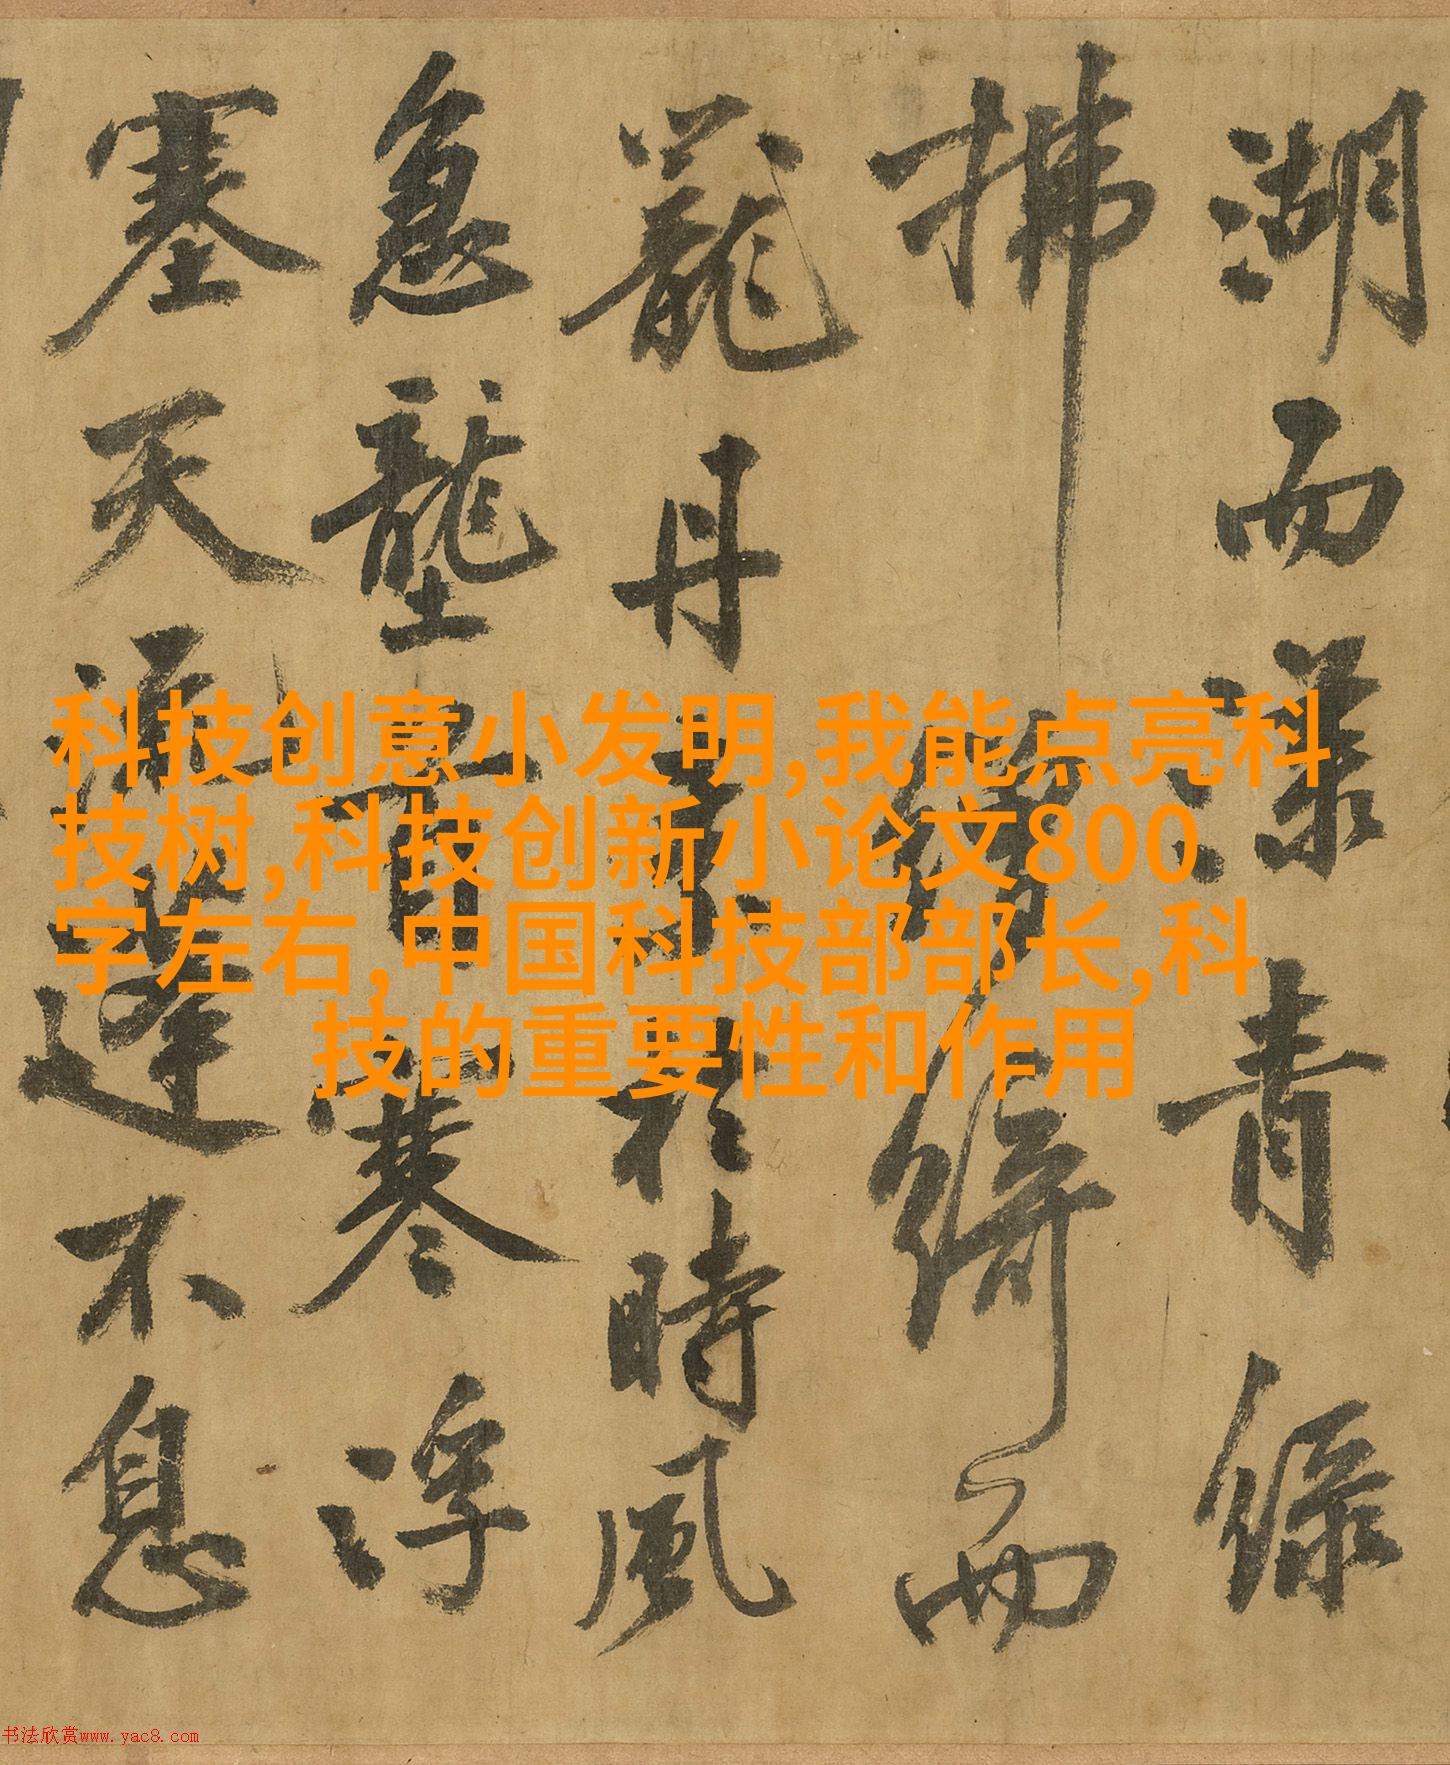 湖而漾青緑
拂綺而
丹於時風
急壟寒浮
塞天不息
科技创意小发明,我能点亮科
技树,科技创新小论文800
字左右,中国科技部部长,科
技的重要性和作用
书法欣赏www.yac8.com